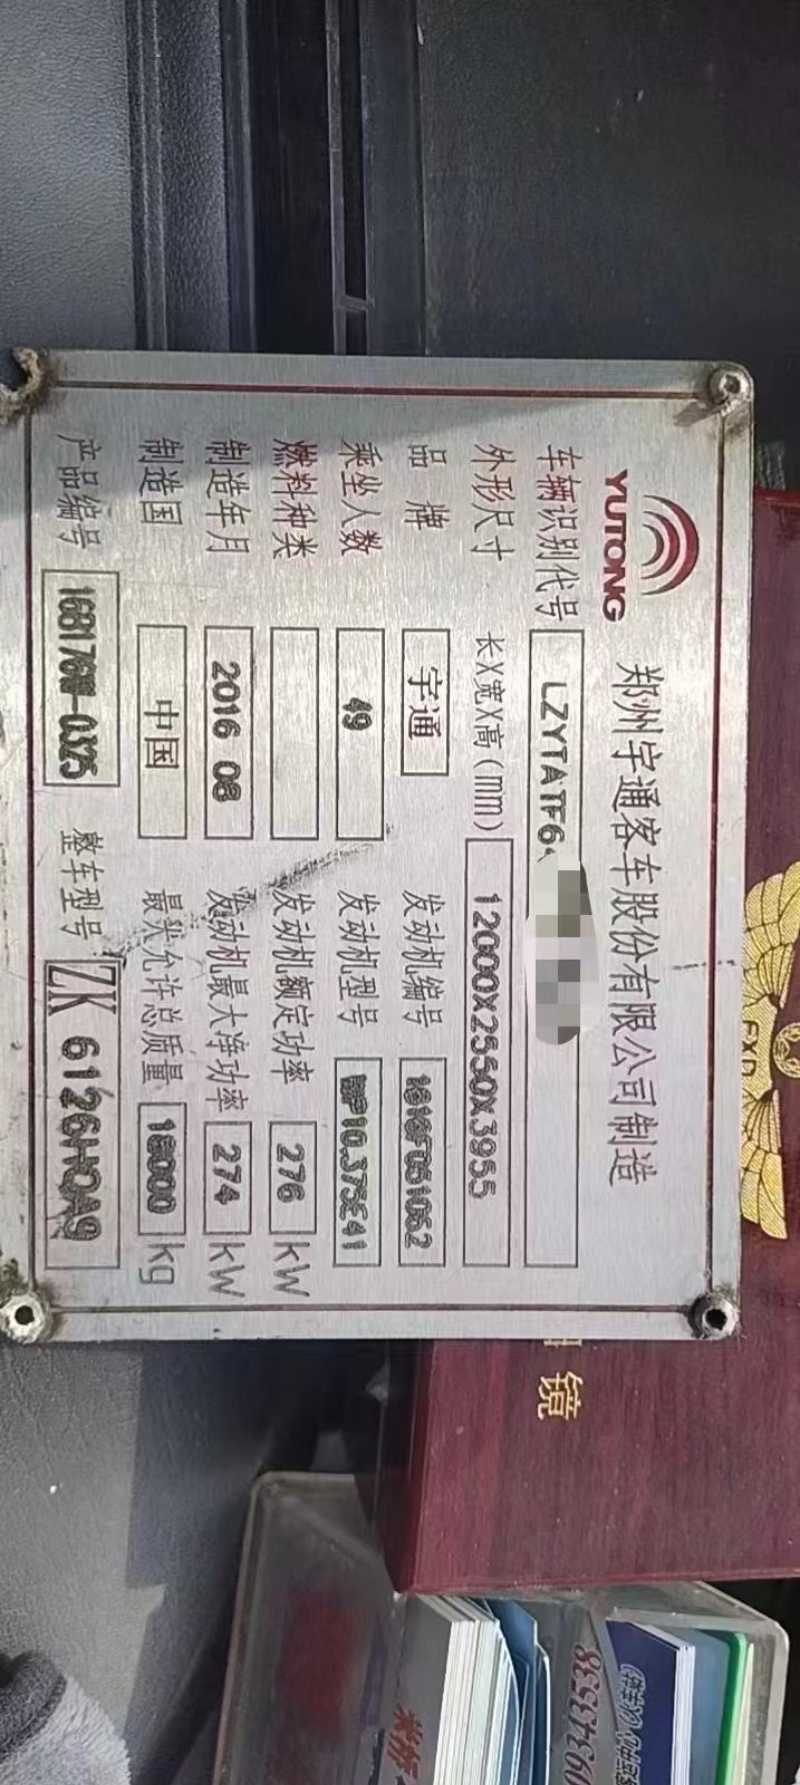 YUTONG
郑州宇通客车股份有限公司制造
车辆识别代号 LZYTATF6
外形尺寸 长X宽X高(mm) 12000X2550X3955
品牌 宇通 发动机编号 1616F051052
乘坐人数 49 发动机型号 WP10.375E41
燃料种类 发动机额定功率 276 kW
制造年月 2016 08 发动机最大净功率 274 kW
制造国 中国 最大允许总质量 18000 kg
产品编号 168176W-0325 整车型号 ZK 6126HQA9
镜